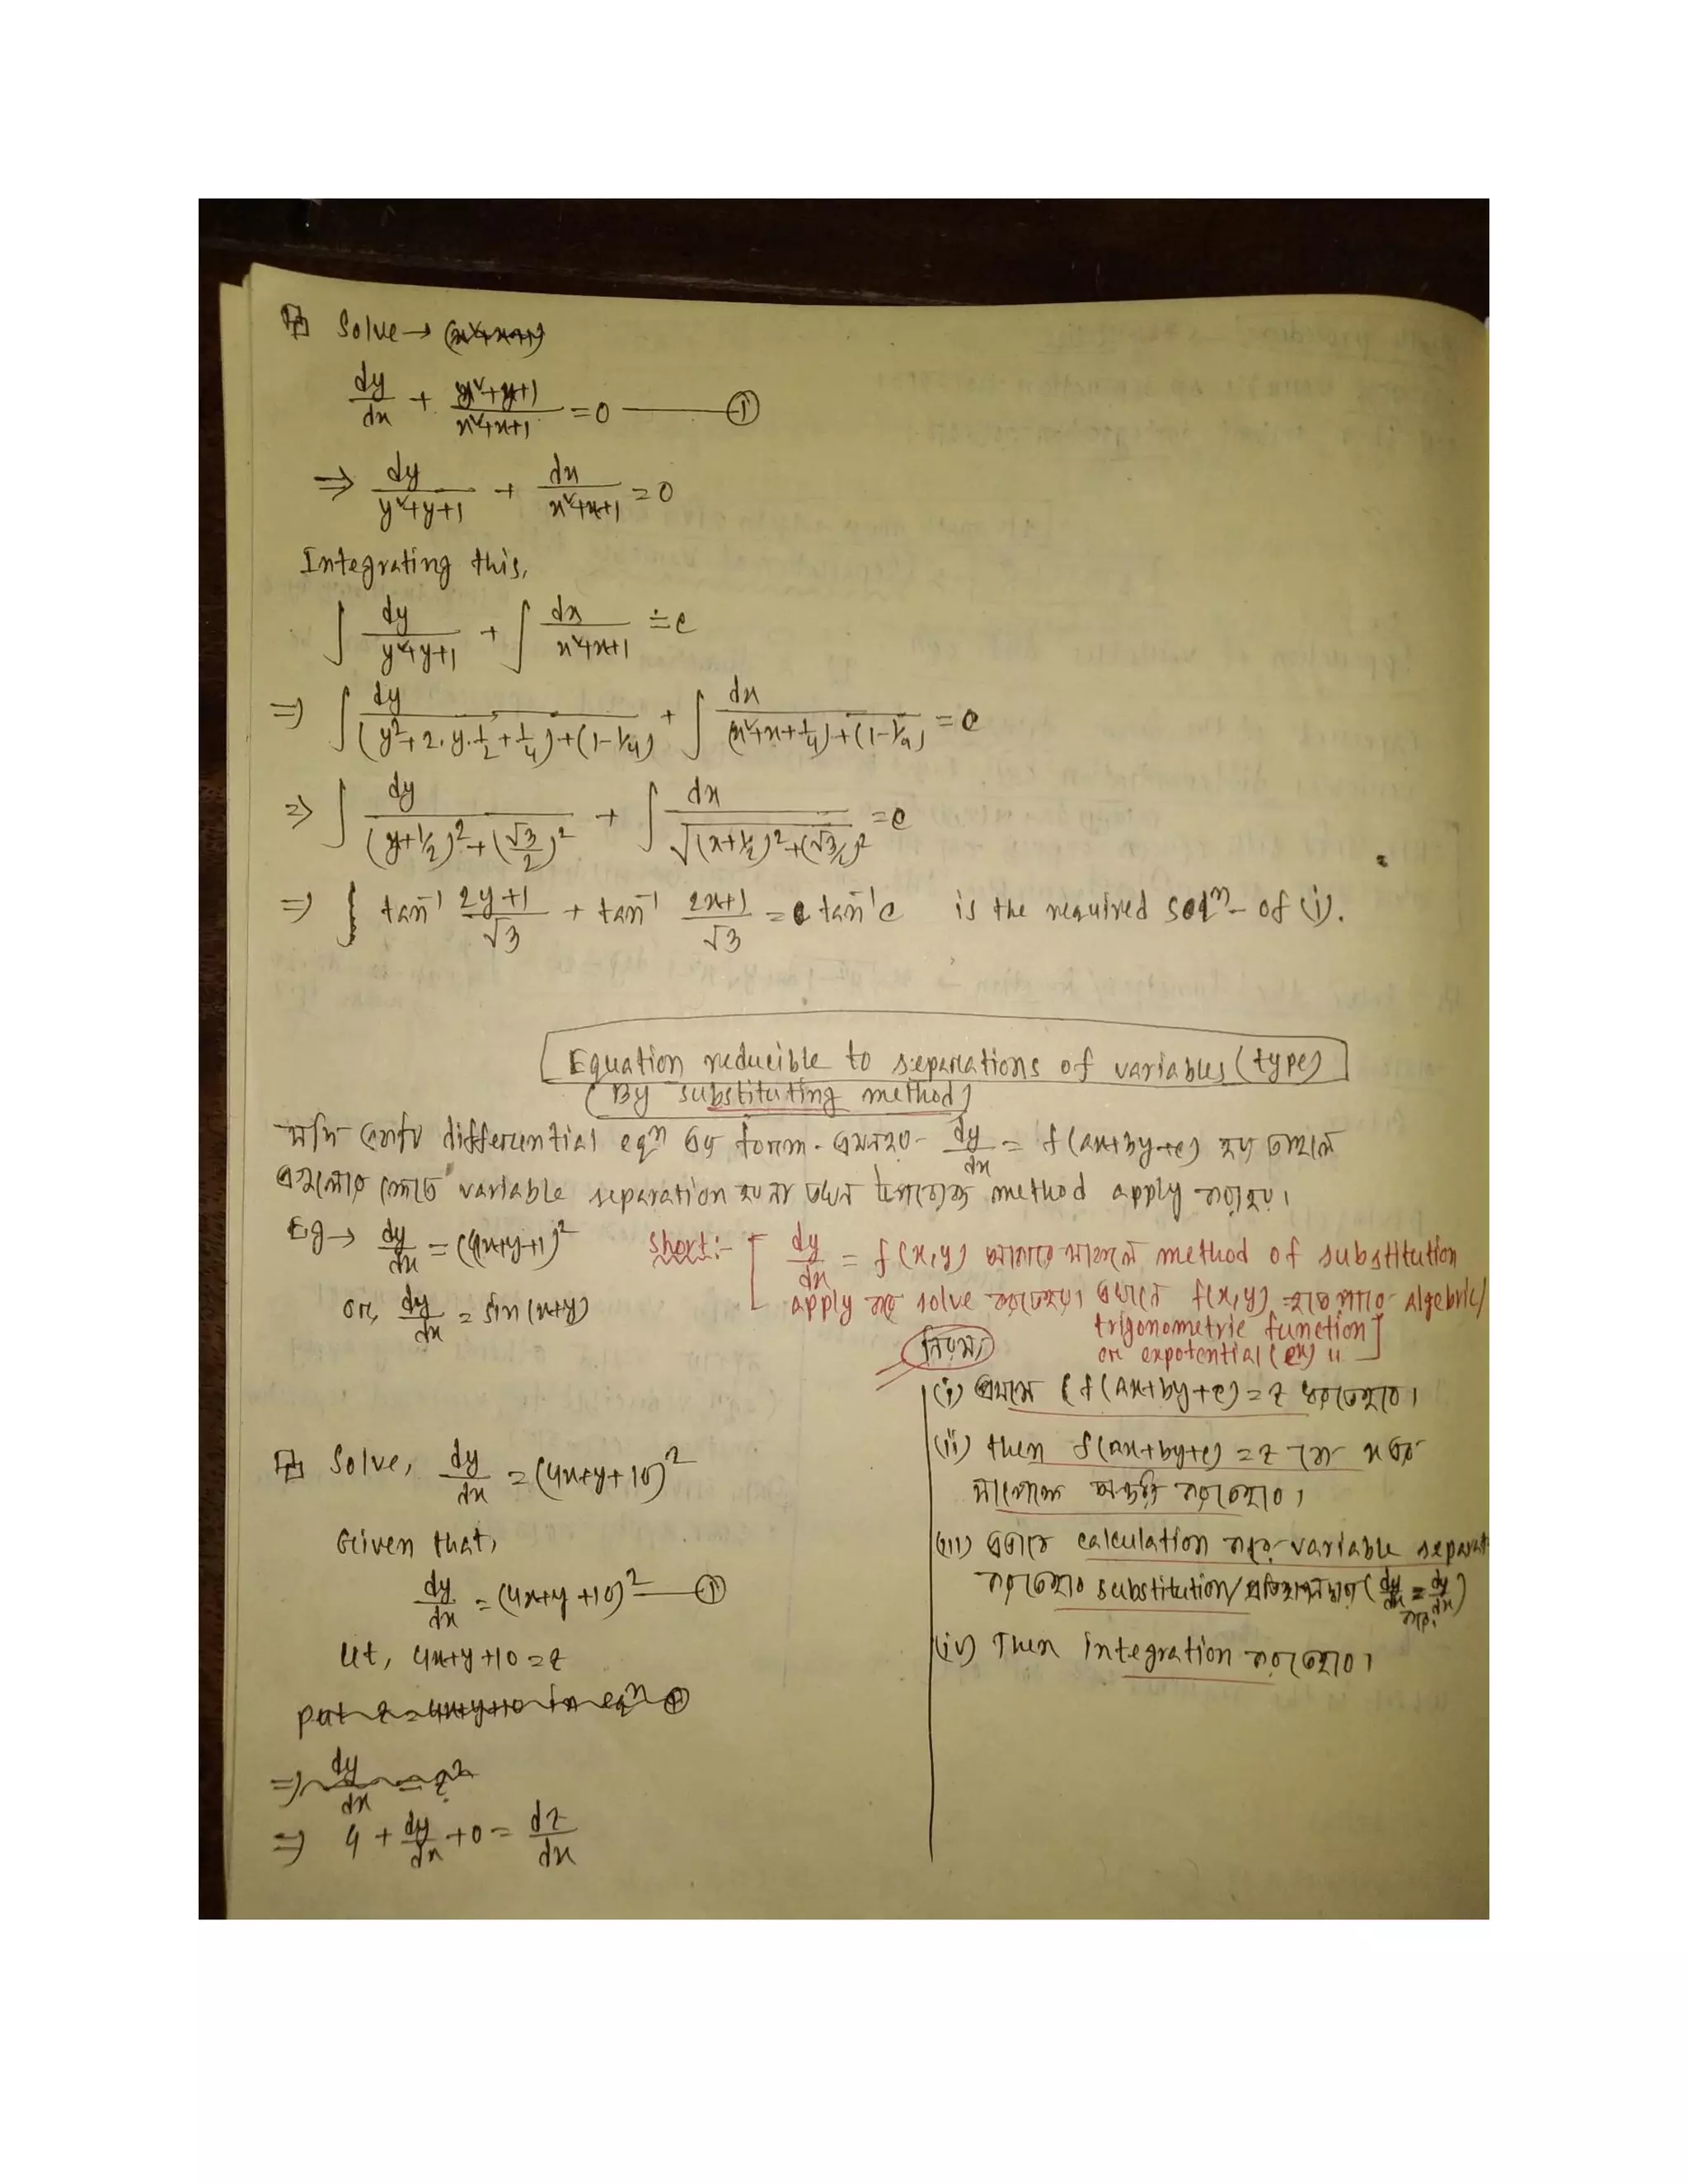 Solve → (x²+x+1)
dy/dx + (y²+y+1)/(x²+x+1) = 0 ——— (i)
⇒ dy/(y²+y+1) + dx/(x²+x+1) = 0
Integrating this,
∫ dy/(y²+y+1) + ∫ dx/(x²+x+1) = c
⇒ ∫ dy/((y²+2.y.1/2+1/4)+(1-1/4)) + ∫ dx/((x²+x+1/4)+(1-1/4)) = c
⇒ ∫ dy/((y+1/2)²+(√3/2)²) + ∫ dx/√((x+1/2)²+(√3/2)²) = c
⇒ tan⁻¹ (2y+1)/√3 + tan⁻¹ (2x+1)/√3 = tan⁻¹c is the required solⁿ of (i).
Equation reducible to separations of variables (type)
(By substituting method)
যদি কোনো differential eqⁿ এর form এমন হয় dy/dx = f(ax+by+c) হয় তাহলে
variable separation হয় না তখন উপরোক্ত method apply করা হয়।
Eg → dy/dx = (4x+y+1)²
or, dy/dx = sin(x+y)
Short:- [ dy/dx = f(x,y) আকারে থাকলে method of substitution
apply করে solve করতে হয়। এখানে f(x,y) হতে পারে algebric/
trigonometric function
or expotential (eˣ) " ]
নিয়মঃ
(i) প্রথমে f(ax+by+c) = z ধরতে হবে।
(ii) then f(ax+by+c) = z কে x এর
সাপেক্ষে অন্তরীকরণ করতে হবে।
(iii) এভাবে calculation করে variable separat
করতে হবে substitution/প্রতিস্থাপন দ্বারা (dy/dx = dy/dx)
করে
(iv) Then integration করতে হবে।
Solve, dy/dx = (4x+y+10)²
Given that,
dy/dx = (4x+y+10)² —— (i)
Let, 4x+y+10 = z
Put z = 4x+y+10 in eqⁿ (i)
⇒ dy/dx = z²
⇒ 4 + dy/dx + 0 = dz/dx